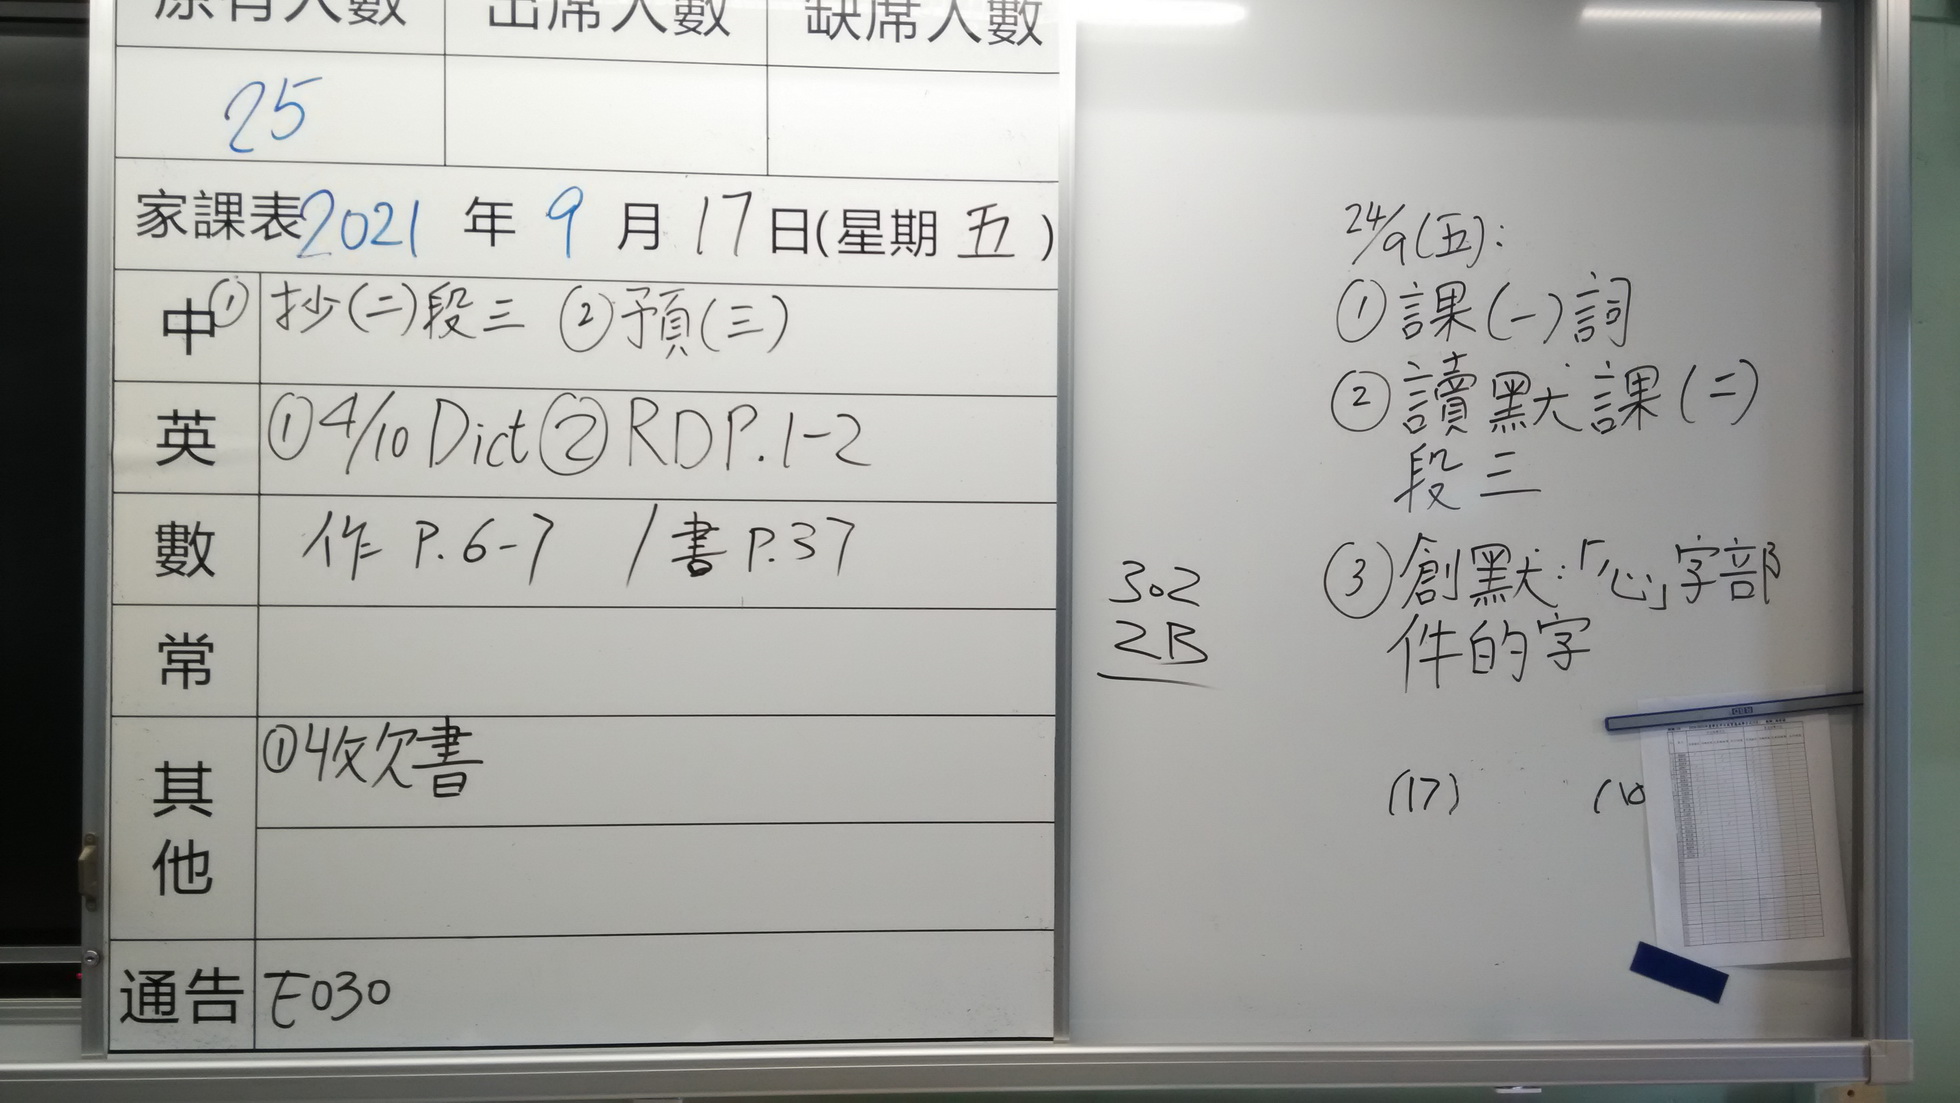 原有人數 出席人數 缺席人數
25
家課表 2021 年 9 月 17 日(星期 五 )
中 ① 抄(二)段三 ② 預(三)
英 ① 4/10 Dict ② RD P.1-2
數 作 P.6-7 / 書 P.37
常
其他 ① 收欠書
通告 E030
302
2B
24/9(五):
① 課(一)詞
② 讀默課(二)
段三
③ 創默:「心」字部
件的字
(17)